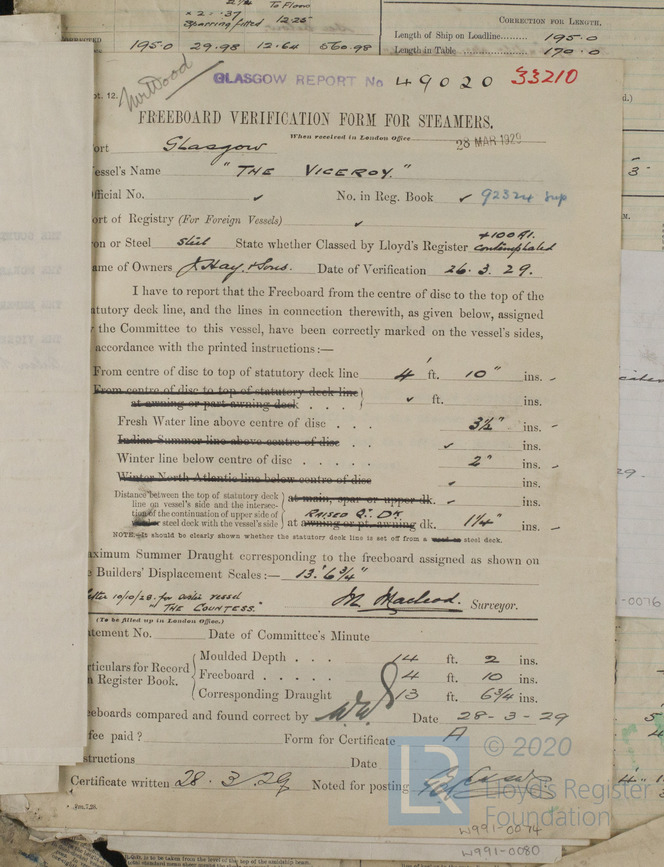 To Floors
× 2 · 37
Sparring fitted 12.25
195.0 29.98 12.64 560.98
CORRECTION FOR LENGTH.
Length of Ship on Loadline........ 195.0
Length in Table .................... 170.0
GLASGOW REPORT No 49020 33210
pt. 12.
FREEBOARD VERIFICATION FORM FOR STEAMERS.
When received in London Office 28 MAR 1929
ort Glasgow
essel's Name "THE VICEROY."
fficial No. ✓ No. in Reg. Book ✓ 92324 Sup
ort of Registry (For Foreign Vessels) ✓
on or Steel Steel State whether Classed by Lloyd's Register +100A1. contemplated
ame of Owners J Hay & Sons. Date of Verification 26.3.29.
I have to report that the Freeboard from the centre of disc to the top of the
atutory deck line, and the lines in connection therewith, as given below, assigned
the Committee to this vessel, have been correctly marked on the vessel's sides,
accordance with the printed instructions:—
From centre of disc to top of statutory deck line 4' ft. 10" ins.
From centre of disc to top of statutory deck line
at awning or part awning deck . . . ✓ ft. ins.
Fresh Water line above centre of disc . . . 3½" ins.
Indian Summer line above centre of disc ✓ ins.
Winter line below centre of disc . . . . . 2" ins.
Winter North Atlantic line below centre of disc ✓ ins.
Distance between the top of statutory deck
line on vessel's side and the intersec-
tion of the continuation of upper side of
steel deck with the vessel's side
at main, spar or upper dk. ✓ ins.
RAISED Q. DK.
at awning or pt. awning dk. 1¼" ins.
NOTE.—It should be clearly shown whether the statutory deck line is set off from a wood or steel deck.
aximum Summer Draught corresponding to the freeboard assigned as shown on
e Builders' Displacement Scales:— 13'.6¾"
letter 10/10/28. for sister vessel
"THE COUNTESS."
M. Macleod. Surveyor.
(To be filled up in London Office.)
tement No. Date of Committee's Minute
rticulars for Record
n Register Book.
Moulded Depth . . . 14 ft. 2 ins.
Freeboard . . . . . 4 ft. 10 ins.
Corresponding Draught 13 ft. 6¾ ins.
eeboards compared and found correct by Date 28-3-29
fee paid ? Form for Certificate A
structions Date
Certificate written 28.3/29 Noted for posting
© 2020
LR
Lloyd's Register
Foundation
W991-0074
W991-0080
-0076